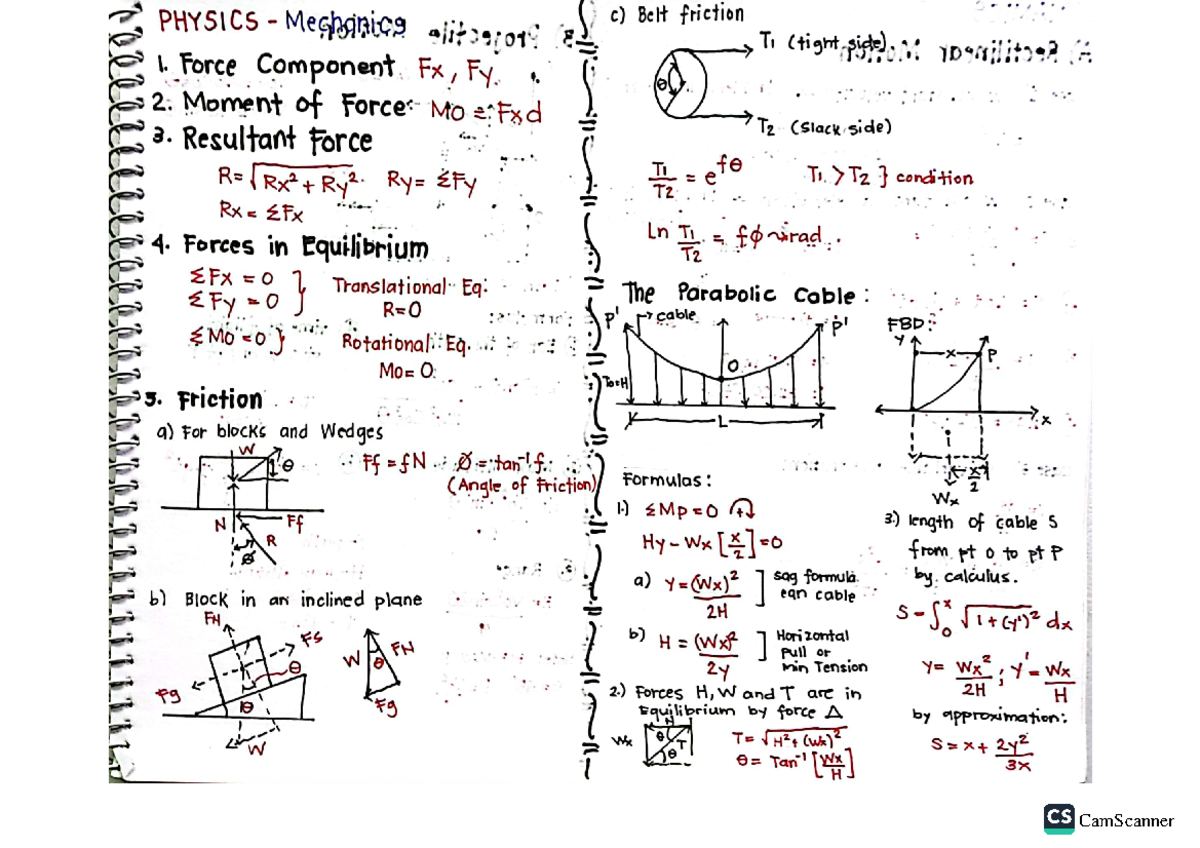 PHYSICS - Mechanics
1. Force Component Fx, Fy
2. Moment of Force Mo = Fxd
3. Resultant Force
R = √Rx² + Ry² Ry = ΣFy
Rx = ΣFx
4. Forces in Equilibrium
ΣFx = 0
ΣFy = 0 } Translational Eq:
R=0
ΣMo = 0 } Rotational Eq.
Mo = 0
5. Friction
a) For blocks and Wedges
W
θ
Ff = fN Ø = tan⁻¹ f
(Angle of Friction)
N
Ff
R
Ø
b) Block in an inclined plane
FN
Fs
θ
Fg
θ
W
W
θ
FN
Fg
c) Belt friction
T1 (tight side)
θ
T2 (slack side)
T1/T2 = e^fθ T1 > T2 } condition
Ln T1/T2 = fø → rad
The Parabolic Cable:
P' → cable P'
O
To=H
L
FBD:
y
x P
x
x/2
Wx
Formulas:
1.) ΣMp = 0 +
Hy - Wx [x/2] = 0
a) Y = (Wx)²/2H ] sag formula
eqn cable
b) H = (Wx)²/2y ] Horizontal
Pull or
Min Tension
2.) Forces H, W and T are in
Equilibrium by force Δ
H
Wx θ T
θ
T = √H² + (Wx)²
θ = Tan⁻¹ [Wx/H]
3.) length of cable S
from pt O to pt P
by calculus.
S = ∫₀ˣ √1 + (y')² dx
Y = Wx²/2H ; Y' = Wx/H
by approximation:
S = x + 2y²/3x
CS CamScanner